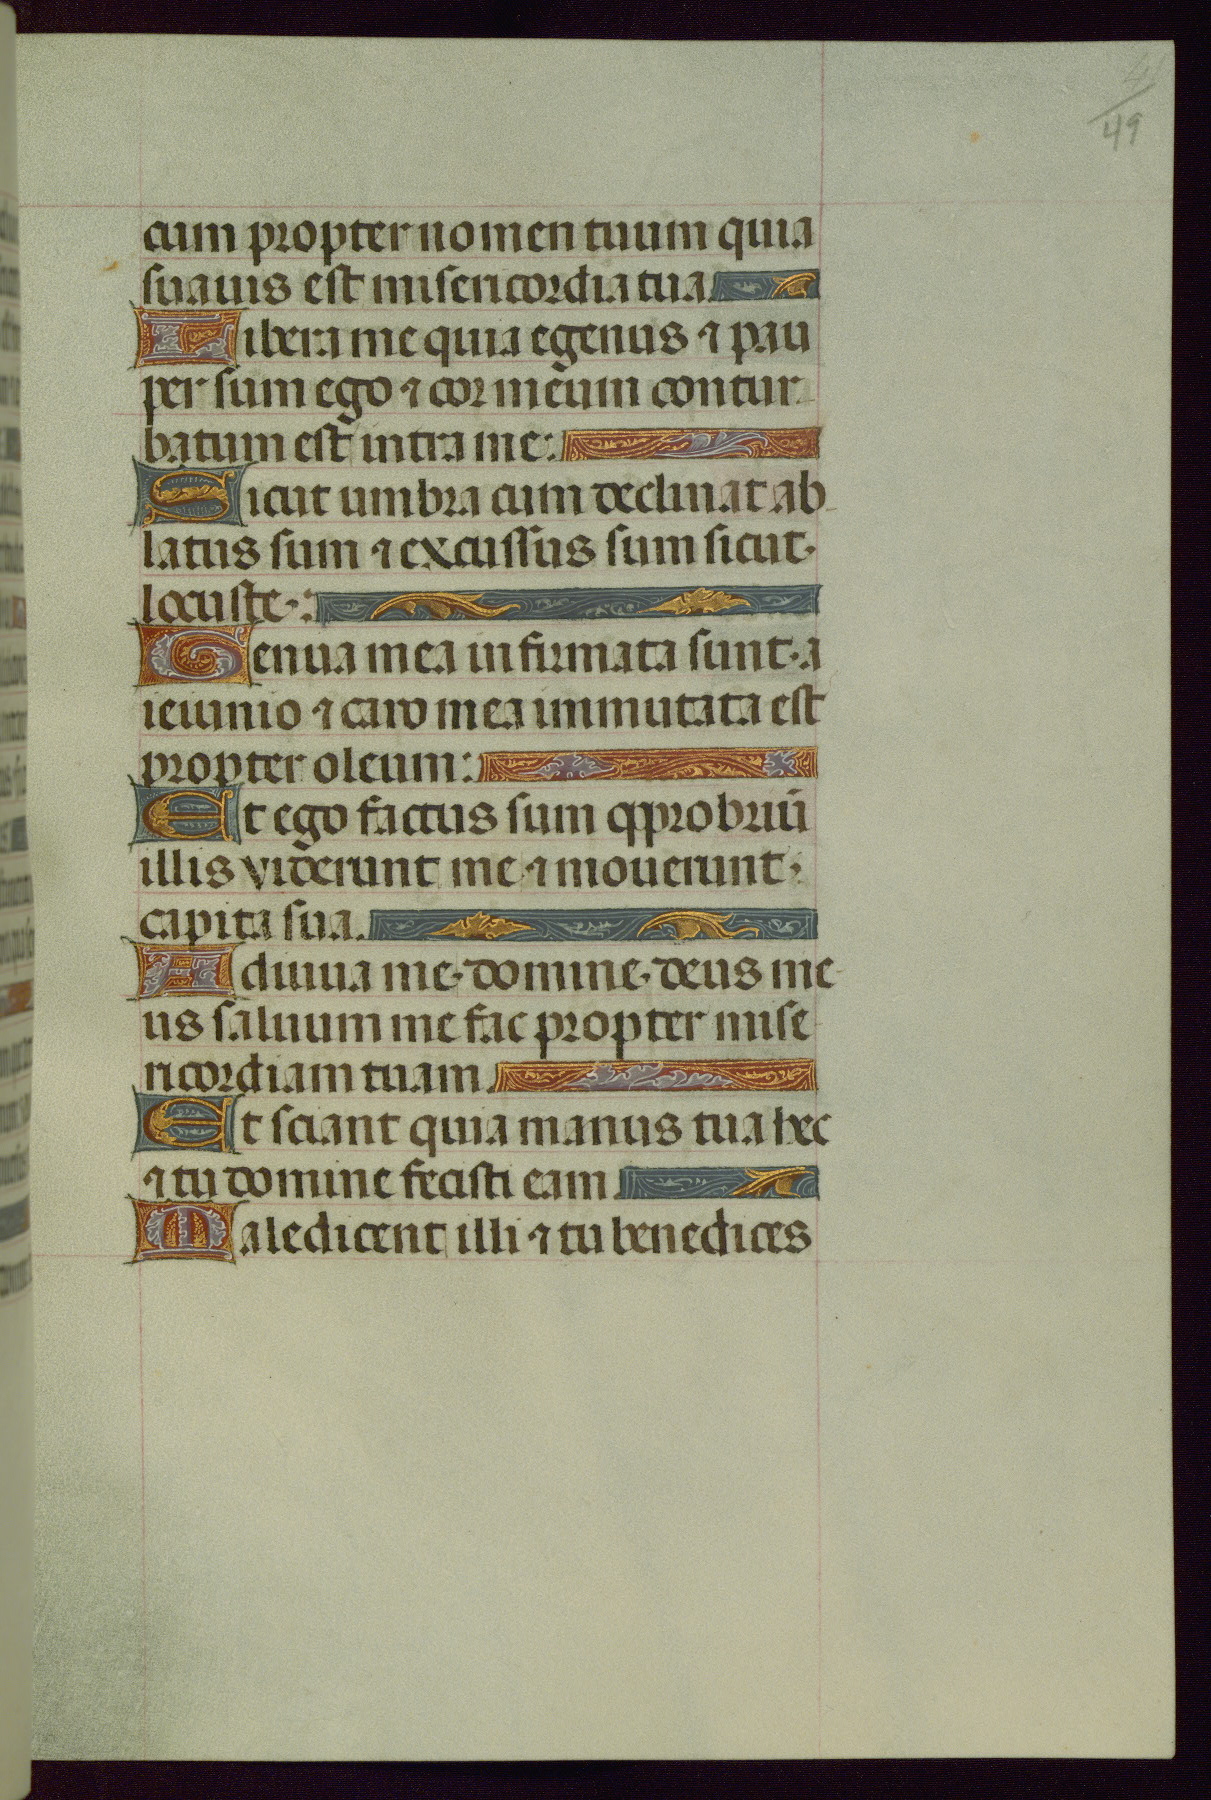 4
49
cum propter nomen tuum quia
suauis est misericordia tua.
Libera me quia egenus ⁊ pau
per sum ego ⁊ cor meum contur
batum est intra me:
Sicut umbra cum declinat ab
latus sum ⁊ excussus sum sicut
locuste:
Genua mea infirmata sunt a
ieiunio ⁊ caro mea immutata est
propter oleum:
Et ego factus sum opprobriū
illis viderunt me ⁊ mouerunt
capita sua.
Adiuua me domine deus me
us saluum me fac propter mise
ricordiam tuam.
Et sciant quia manus tua hec
⁊ tu domine fecisti eam
Maledicent illi ⁊ tu benedices